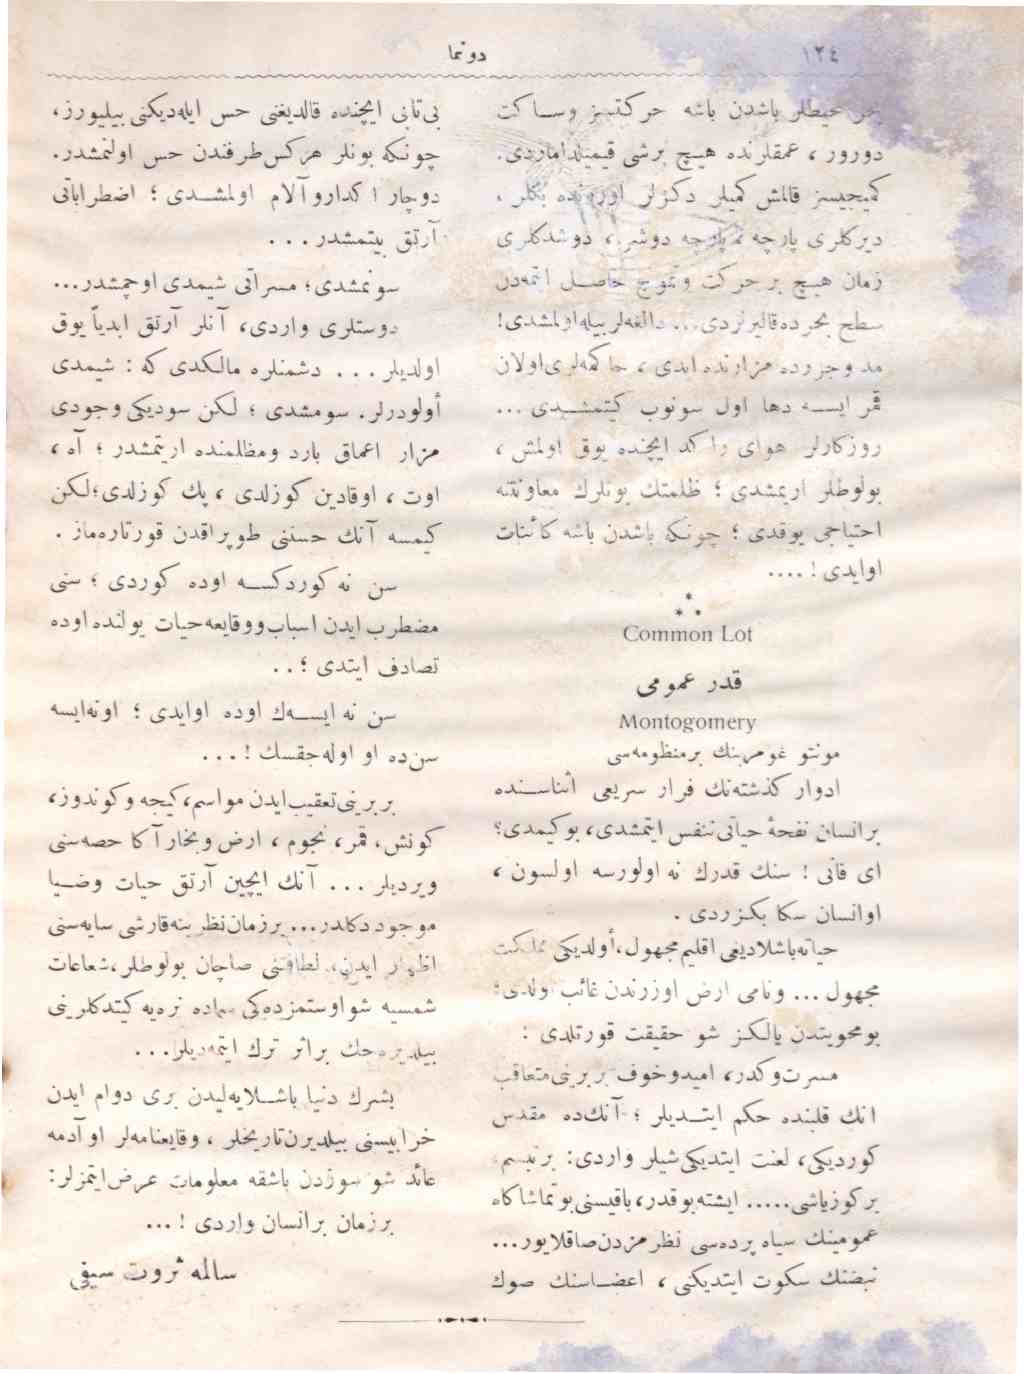 ١٢٤
دوتما
بحر محيطلر باشدن باشه حركتسز وساكت
دورور ، عمقلرنده هيچ برشى قيميلداماردى.
كميجيسز قالمش كميلر دكزلر اوزرنده بكلر ،
ديركلرى پارچه پارچه دوشر ، دوشدكلرى
زمان هيچ بر حركت وتموج حاصل ايتمه‌دن
سطح بحرده قاليرلردى... دالغه‌لر بيله اولمشدى!
مد وجزرده مزارنده ايدى ، حاكمه‌لرى اولان
قمر ايسه دها اول سونوب كيتمشدى ...
روزكارلر هواى راكد ايچنده يوق اولمش ،
بولوطلر اريمشدى ؛ ظلمتك بونلرك معاونتنه
احتياجى يوقدى ؛ چونكه باشدن باشه كائنات
اوايدى ! ....
⁂
Common Lot
قدر عمومى
Montogomery
مونتو غومرينك برمنظومه‌سى
ادوار كذشته‌نك فرار سريعى اثناسنده
برانسان نفحۀ حياتى تنفس ايتمشدى، بوكيمدى؟
اى فانى ! سنك قدرك نه اولورسه اولسون ،
اوانسان سكا بكزردى .
حياته باشلاديغى اقليم مجهول، أولديكى مملكت
مجهول ... ونامى ارض اوزرندن غائب اولدى؛
بومحويتدن يالكز شو حقيقت قورتلدى :
مسرت‌وكدر، اميدوخوف بربرينى متعاقب
انك قلبنده حكم ايتديلر ؛ آنك‌ده مقدس
كورديكى، لعنت ايتديكى شيلر واردى: برتبسم،
بركوزياشى..... ايشته بوقدر، باقيسنى بوتماشاكاه
عموميتك سياه پرده‌سى نظرمزدن صاقلايور...
نبضنك سكوت ايتديكنى ، اعضاسنك صوك
بى‌تابى ايچنده قالديغنى حس ايله‌ديكنى بيليورز،
چونكه بونلر هركس طرفندن حس اولنمشدر.
دوچار اكداروآلام اولمشدى ؛ اضطراباتى
آرتق بيتمشدر ...
سونمشدى؛ مسراتى شيمدى اوچمشدر...
دوستلرى واردى، آنلر آرتق ابدياً يوق
اولديلر ... دشمنلره مالكدى كه : شيمدى
أولودرلر. سومشدى ؛ لكن سوديكى وجودى
مزار اعماق بارد ومظلمنده اريتمشدر ؛ آه ،
اوت ، اوقادين كوزلدى ، پك كوزلدى؛ لكن
كيمسه آنك حسننى طوپراقدن قورتاره‌ماز .
سن نه كوردكسه اوده كوردى ؛ سنى
مضطرب ايدن اسباب ووقايعه حيات يولنده اوده
تصادف ايتدى ؛ ..
سن نه ايسه‌ك اوده اوايدى ؛ اونه‌ايسه
سن‌ده او اوله‌جقسك ! ...
بربرينى تعقيب ايدن مواسم، كيجه وكوندوز،
كونش، قمر، نجوم ، ارض وبخار آكا حصه‌سنى
ويرديلر ... آنك ايچين آرتق حيات وضيا
موجود دكلدر... برزمان نظرينه قارشى سايه‌سنى
اظهار ايدن، لطافتنى صاچان بولوطلر، شعاعات
شمسيه شواوستمزده‌كى سماده نره‌يه كيتدكلرينى
بيلديره‌جك براثر ترك ايتمه‌ديلر...
بشرك دنيا باشلايه‌ليدن برى دوام ايدن
خرابيسنى بيلديرن تاريخلر ، وقايعنامه‌لر اوآدمه
عائد شو سوزدن باشقه معلومات عرض ايتمزلر:
برزمان برانسان واردى ! ...
سالمه ثروت سيفى